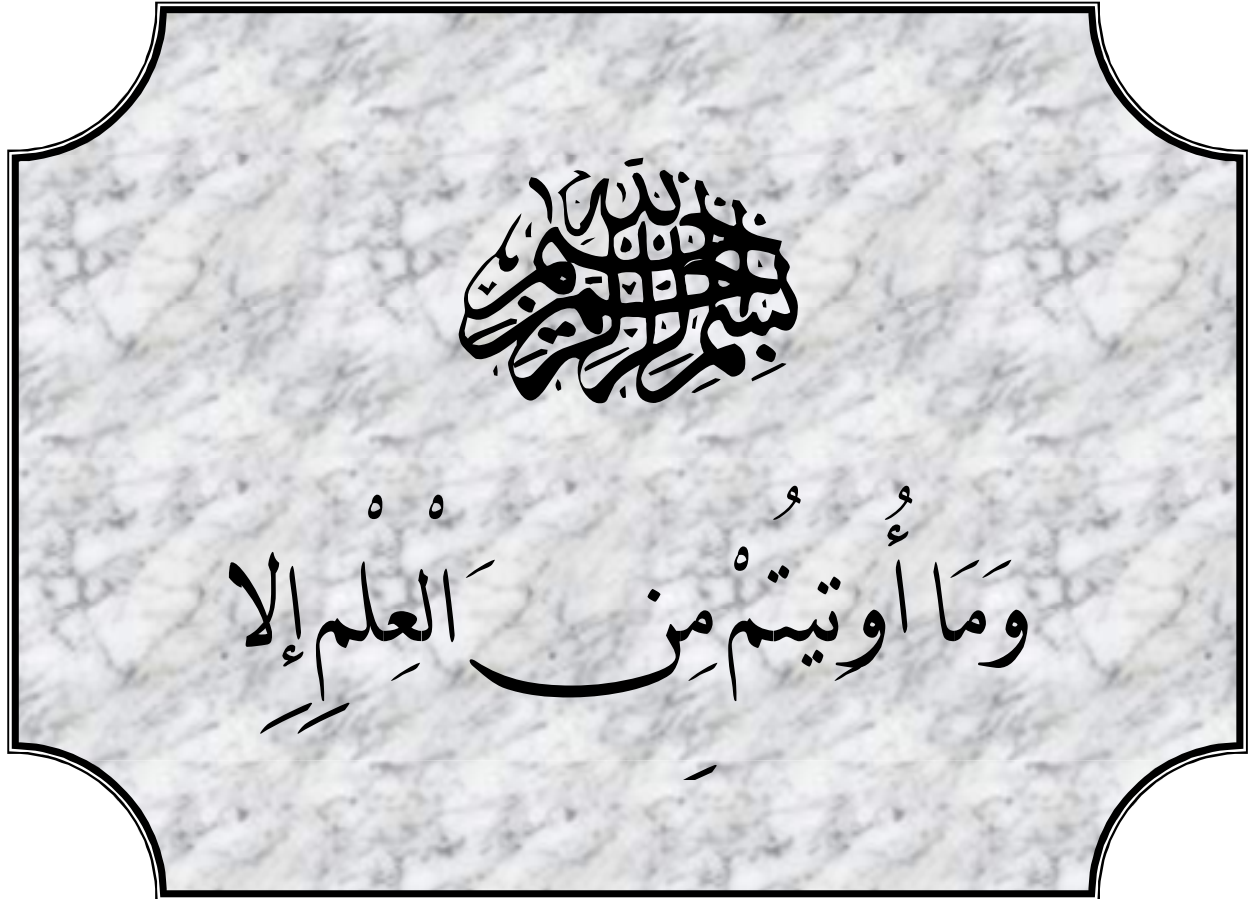 بسم الله الرحمن الرحيم
وَمَا أُوتِيتُمْ مِنَ الْعِلْمِ إِلا